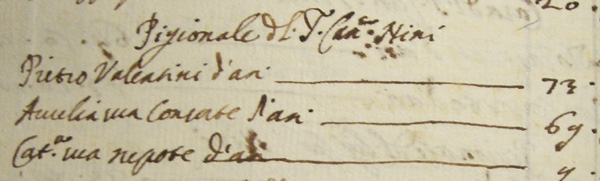 20.
Pigionale d.l. T. Can.co Nini
Pietro Valentini d'an: 73.
Aurelia sua Consorte d'an: 69.
Cat.a sua nepote d'an 9.